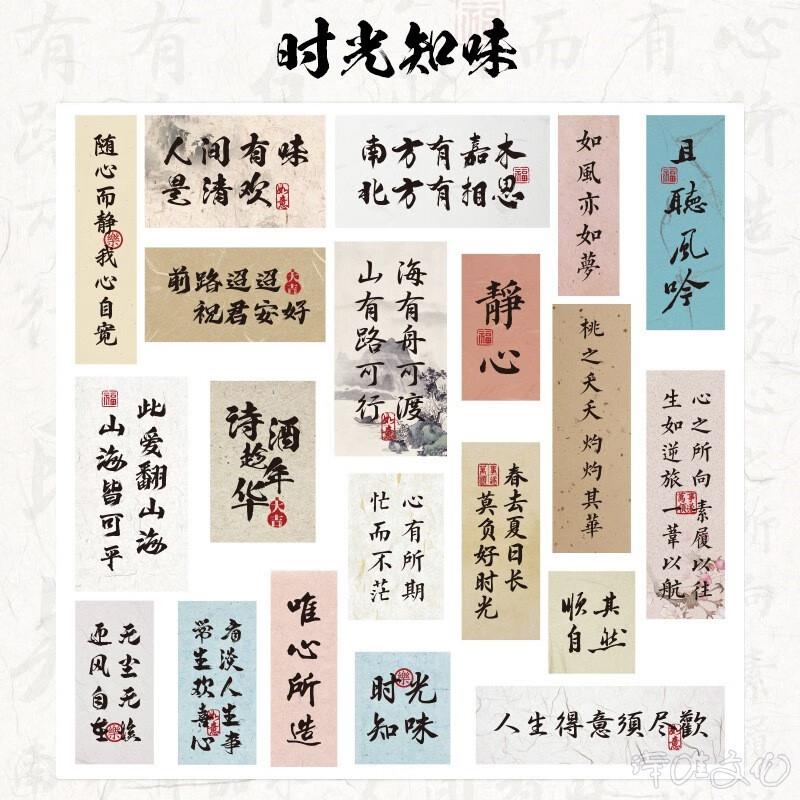 时光知味
随心而静
我心自宽
樂
人间有味
是清欢
如意
南方有嘉木
北方有相思
福
如風亦如夢
且聽風吟
福
前路迢迢
祝君安好
大吉
海有舟可渡
山有路可行
如意
靜心
福
桃之夭夭 灼灼其華
心之所向 素履以往
生如逆旅 一葦以航
此爱翻山海
山海皆可平
福
诗酒趁年华
大吉
心有所期
忙而不茫
春去夏日长
莫负好时光
顺其
自然
无尘无
风自在
樂
看淡人生事
常生欢喜心
如意
唯心所造
时光
知味
樂
人生得意須尽歡
如意